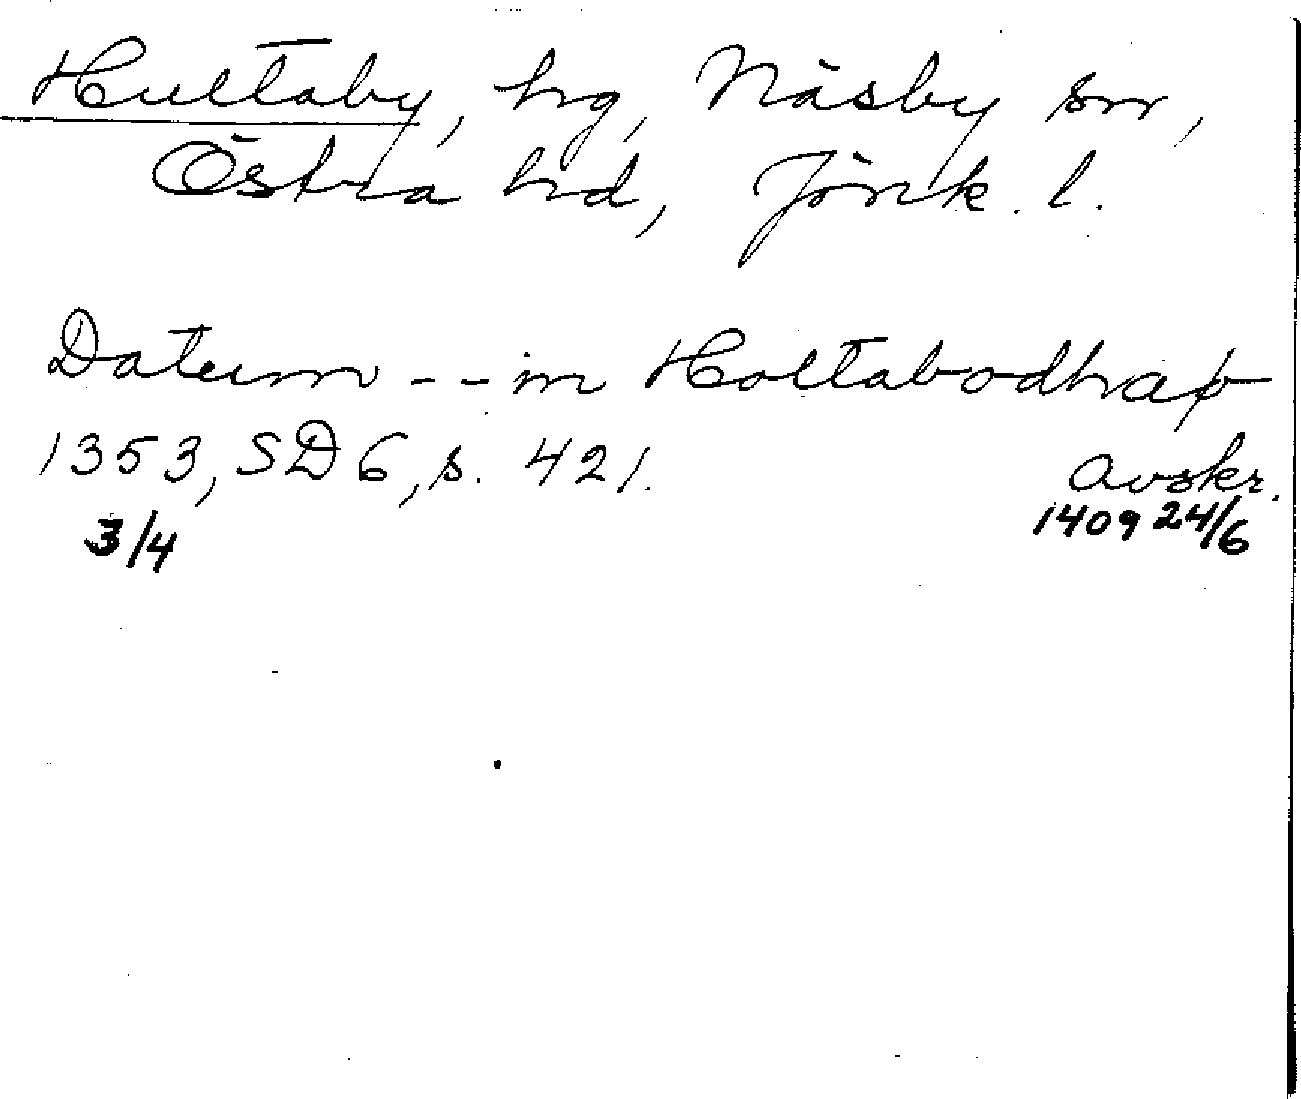 Hultaby, hg, Näsby sn,
Östra hd, Jönk. l.
Datum -- in Holtabodhap
1353, SD 6, s. 421.
Avskr.
3/4
1409 24/6